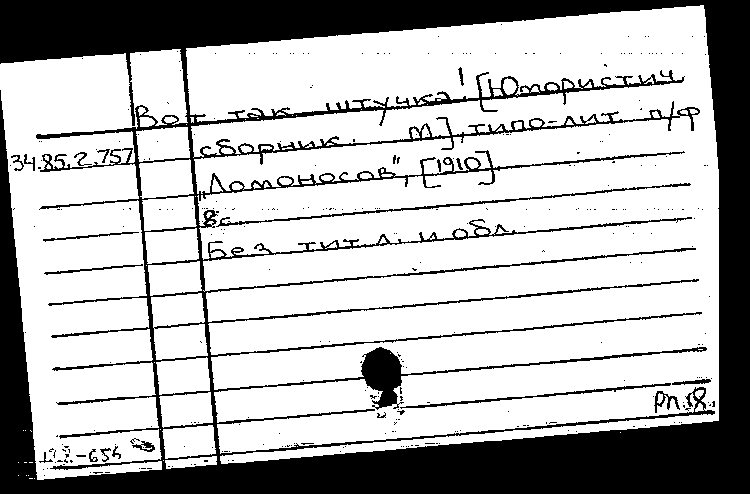 Вот так штучка! [Юмористич
34.85.2.757 сборник. М.], типо-лит. п/ф
„Ломоносов", [1910].
8с.
Без тит. л. и обл.